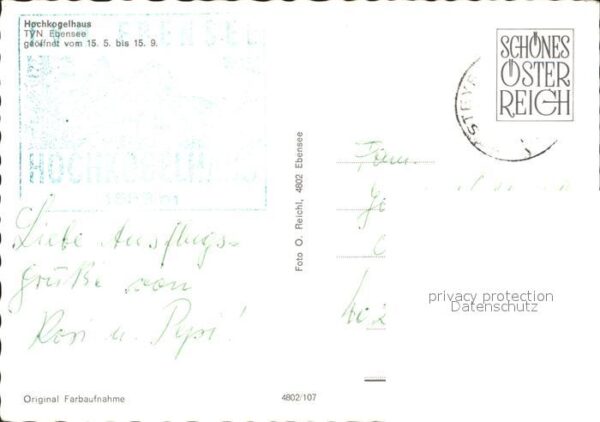 Hochkogelhaus
TVN Ebensee
geöffnet vom 15. 5. bis 15. 9.
EBENSEE
HOCHKOGELHAUS
SCHÖNES
ÖSTER
REICH
Foto O. Reichl, 4802 Ebensee
Fam.
Liebe Ausflugs-
grüße von
Rosi u. Pepi!
privacy protection
Datenschutz
Original Farbaufnahme
4802/107